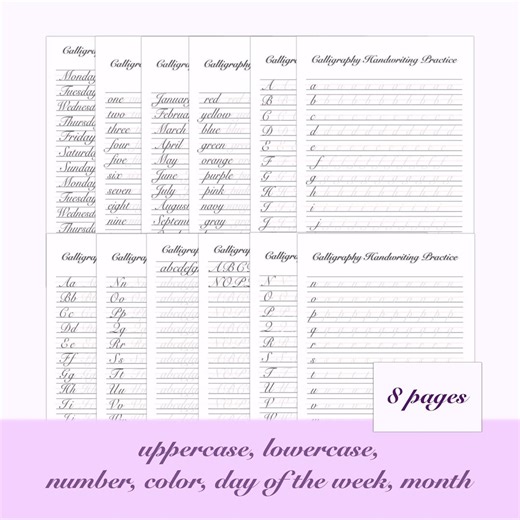 Calligraphy
Monday
Tuesday
Wednesday
Thursday
Friday
Saturday
Sunday
Monday
Tuesday
Wednesday
Thursday
Calligraphy
one
two
three
four
five
six
seven
eight
nine
Calligraphy
January
Februa
March
April
May
June
July
August
Septem
Calligraphy
red
yellow
blue
green
orange
purple
pink
navy
gray
Calligra
A
B
C
D
E
F
G
H
I
J
Calligraphy Handwriting Practice
a
b
c
d
e
f
g
h
i
j
Calligraphy
Aa
Bb
Cc
Dd
Ee
Ff
Gg
Hh
Ii
Calligraphy
Nn
Oo
Pp
Qq
Rr
Ss
Tt
Uu
Vv
Calligraphy
abcdefg
Calligraphy
ABCD
NOP
Calligra
N
O
P
Q
R
S
T
U
V
Calligraphy Handwriting Practice
n
o
p
q
r
s
t
u
v
8 pages
uppercase, lowercase,
number, color, day of the week, month